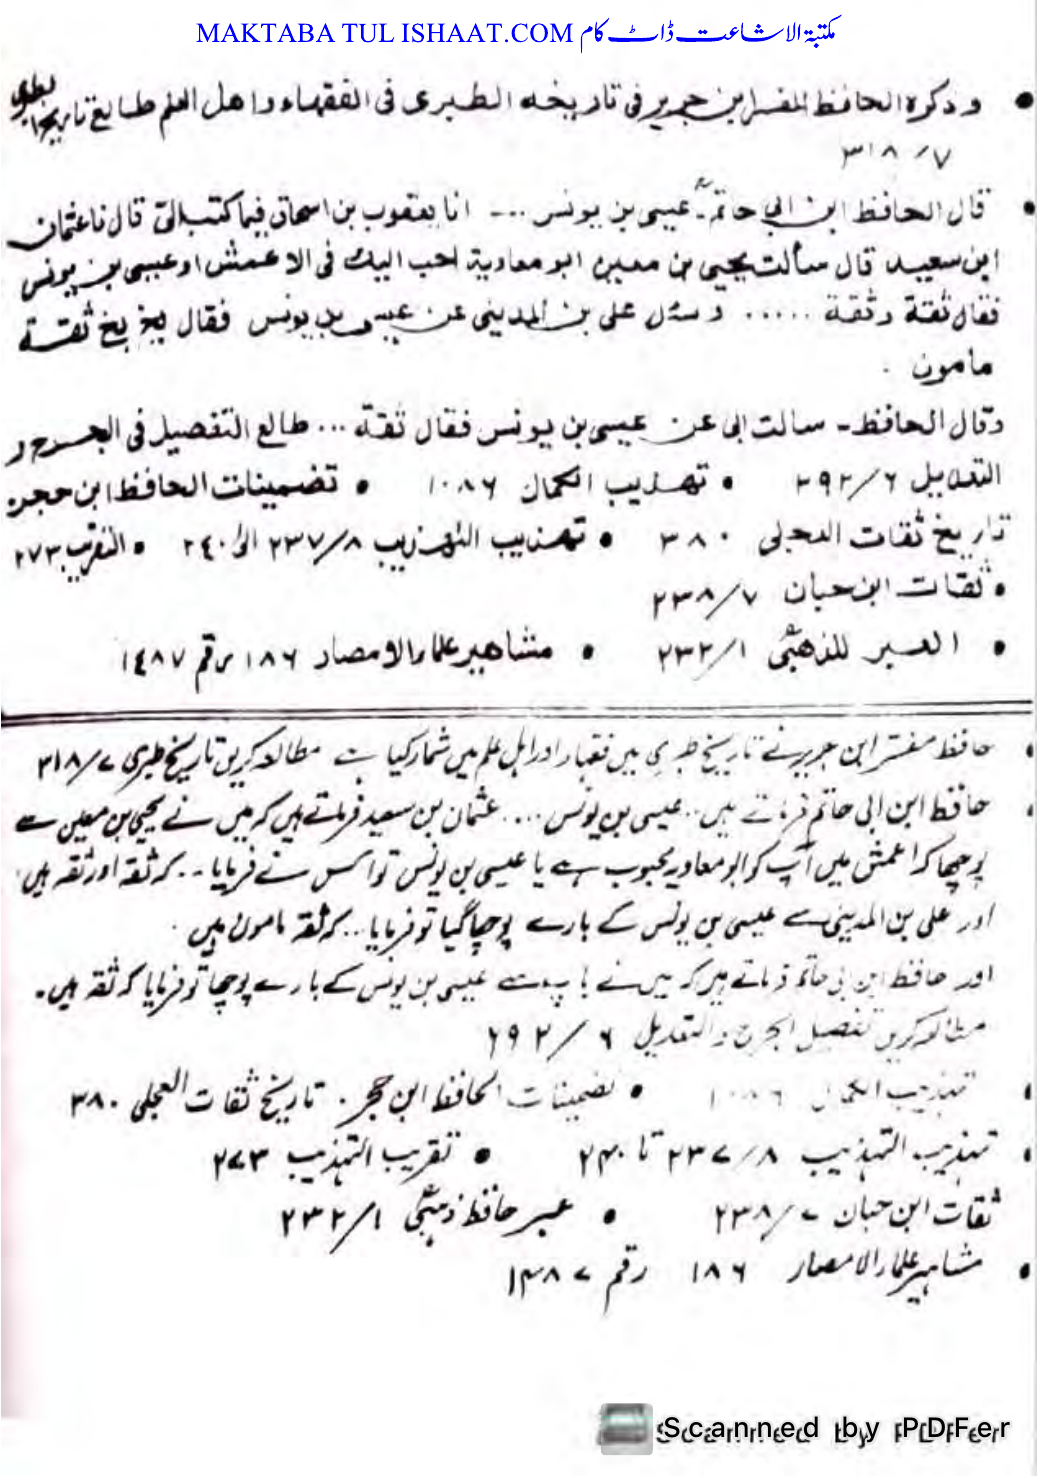 MAKTABA TUL ISHAAT.COM مکتبۃ الاشاعت ڈاٹ کام
• وذكره الحافظ المفسر ابن جرير فى تاريخه الطبرى فى الفقهاء واهل العلم طالع تاريخ الطبرى
٣١٨/٧
• قال الحافظ ابن ابى حاتمؒ۔ عيسى بن يونس ... انا يعقوب بن اسحاق فيما كتب الىّ قال نا عثمان
ابن سعيد قال سألت يحيى بن معين ابو معاوية احب اليك فى الاعمش او عيسى بن يونس
فقال ثقة وثقة ..... وسئل على بن المدينى عن عيسى بن يونس فقال بخ بخ ثقة
مامون .
وقال الحافظ۔ سالت ابى عن عيسى بن يونس فقال ثقة ... طالع التفصيل فى الجرح و
التعديل ٢٩٢/٦ • تهذيب الكمال ١٠٨٦ • تضمينات الحافظ ابن حجر
تاريخ ثقات العجلى ٣٨٠ • تهذيب التهذيب ٢٣٧/٨ الى ٢٤٠ • التقريب ٢٧٣
• ثقات ابن حبان ٢٣٨/٧
• العبر للذهبىؒ ٢٣٢/١ • مشاهير علماء الامصار ١٨٦ رقم ١٤٨٧
• حافظ مفسر ابن جریر نے تاریخ طبری میں فقہاء اور اہل علم میں شمار کیا ہے مطالعہ کریں تاریخ طبری ۳۱۸/۷
• حافظ ابن ابی حاتم فرماتے ہیں.. عیسی بن یونس .... عثمان بن سعید فرماتے ہیں کہ میں نے یحییٰ بن معین سے
پوچھا کہ اعمش میں آپ کو ابو معاویہ محبوب ہے یا عیسی بن یونس تو اس نے فرمایا.. کہ ثقہ اور ثقہ ہیں
اور علی بن المدینی سے عیسی بن یونس کے بارے پوچھا گیا تو فرمایا.. کہ ثقہ مامون ہیں .
اور حافظ ابن ابی حاتم فرماتے ہیں کہ میں نے باپ سے عیسی بن یونس کے بارے پوچھا تو فرمایا کہ ثقہ ہیں۔
مطالعہ کریں تفصیل الجرح والتعدیل ۲۹۲/۶
• تہذیب الکمال ۱۰۸۶ • تضمینات الحافظ ابن حجر . تاریخ ثقات العجلی ۳۸۰
• تہذیب التہذیب ۲۳۷/۸ تا ۲۴۰ • تقریب التہذیب ۲۷۳
ثقات ابن حبان ۲۳۸/۷ • عبر حافظ ذہبیؒ ۲۳۲/۱
• مشاہیر علماء الامصار ۱۸۶ رقم ۱۴۸۷
Scanned by PDFer